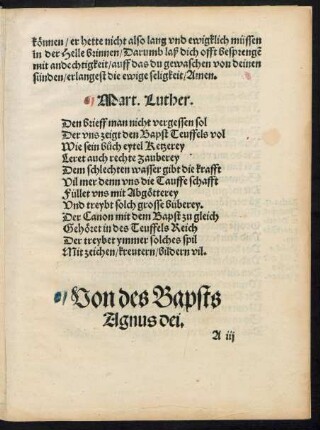 können / er hette nicht also lang vnd ewigklich müssen
in der Helle brinnen / Darumb laß dich offt besprengẽ
mit andechtigkeit / auff das du gewaschen von deinen
sünden / erlangest die ewige seligkeit / Amen.
Mart. Luther.
Den brieff man nicht vergessen sol
Der vns zeigt den Bapst Teuffels vol
Wie sein büch eytel Ketzerey
Leret auch rechte zauberey
Dem schlechten wasser gibt die krafft
Vil mer denn vns die Tauffe schafft
Füllet vns mit Abgötterey
Vnd treybt solch grosse büberey.
Der Canon mit dem Bapst zu gleich
Gehöret in des Teuffels Reich
Der treybet ymmer solches spil
Mit zeichen / kreutern / bildern vil.
Von des Bapsts
Agnus dei.
A iij